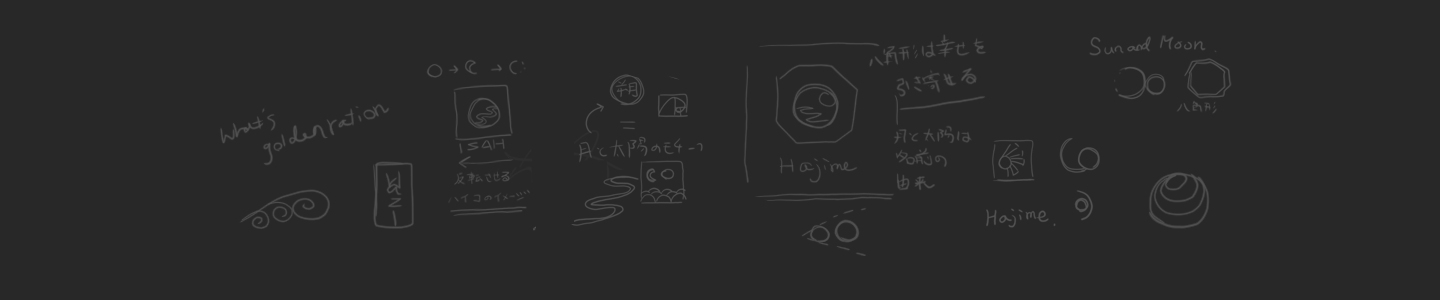 What's
goldenration
ISAH
反転させる
ハイコのイメージ
朔
月と太陽のモチーフ
Hajime
八角形は幸せを
引き寄せる
月と太陽は
名前の
由来
Hajime.
Sun and Moon.
八角形